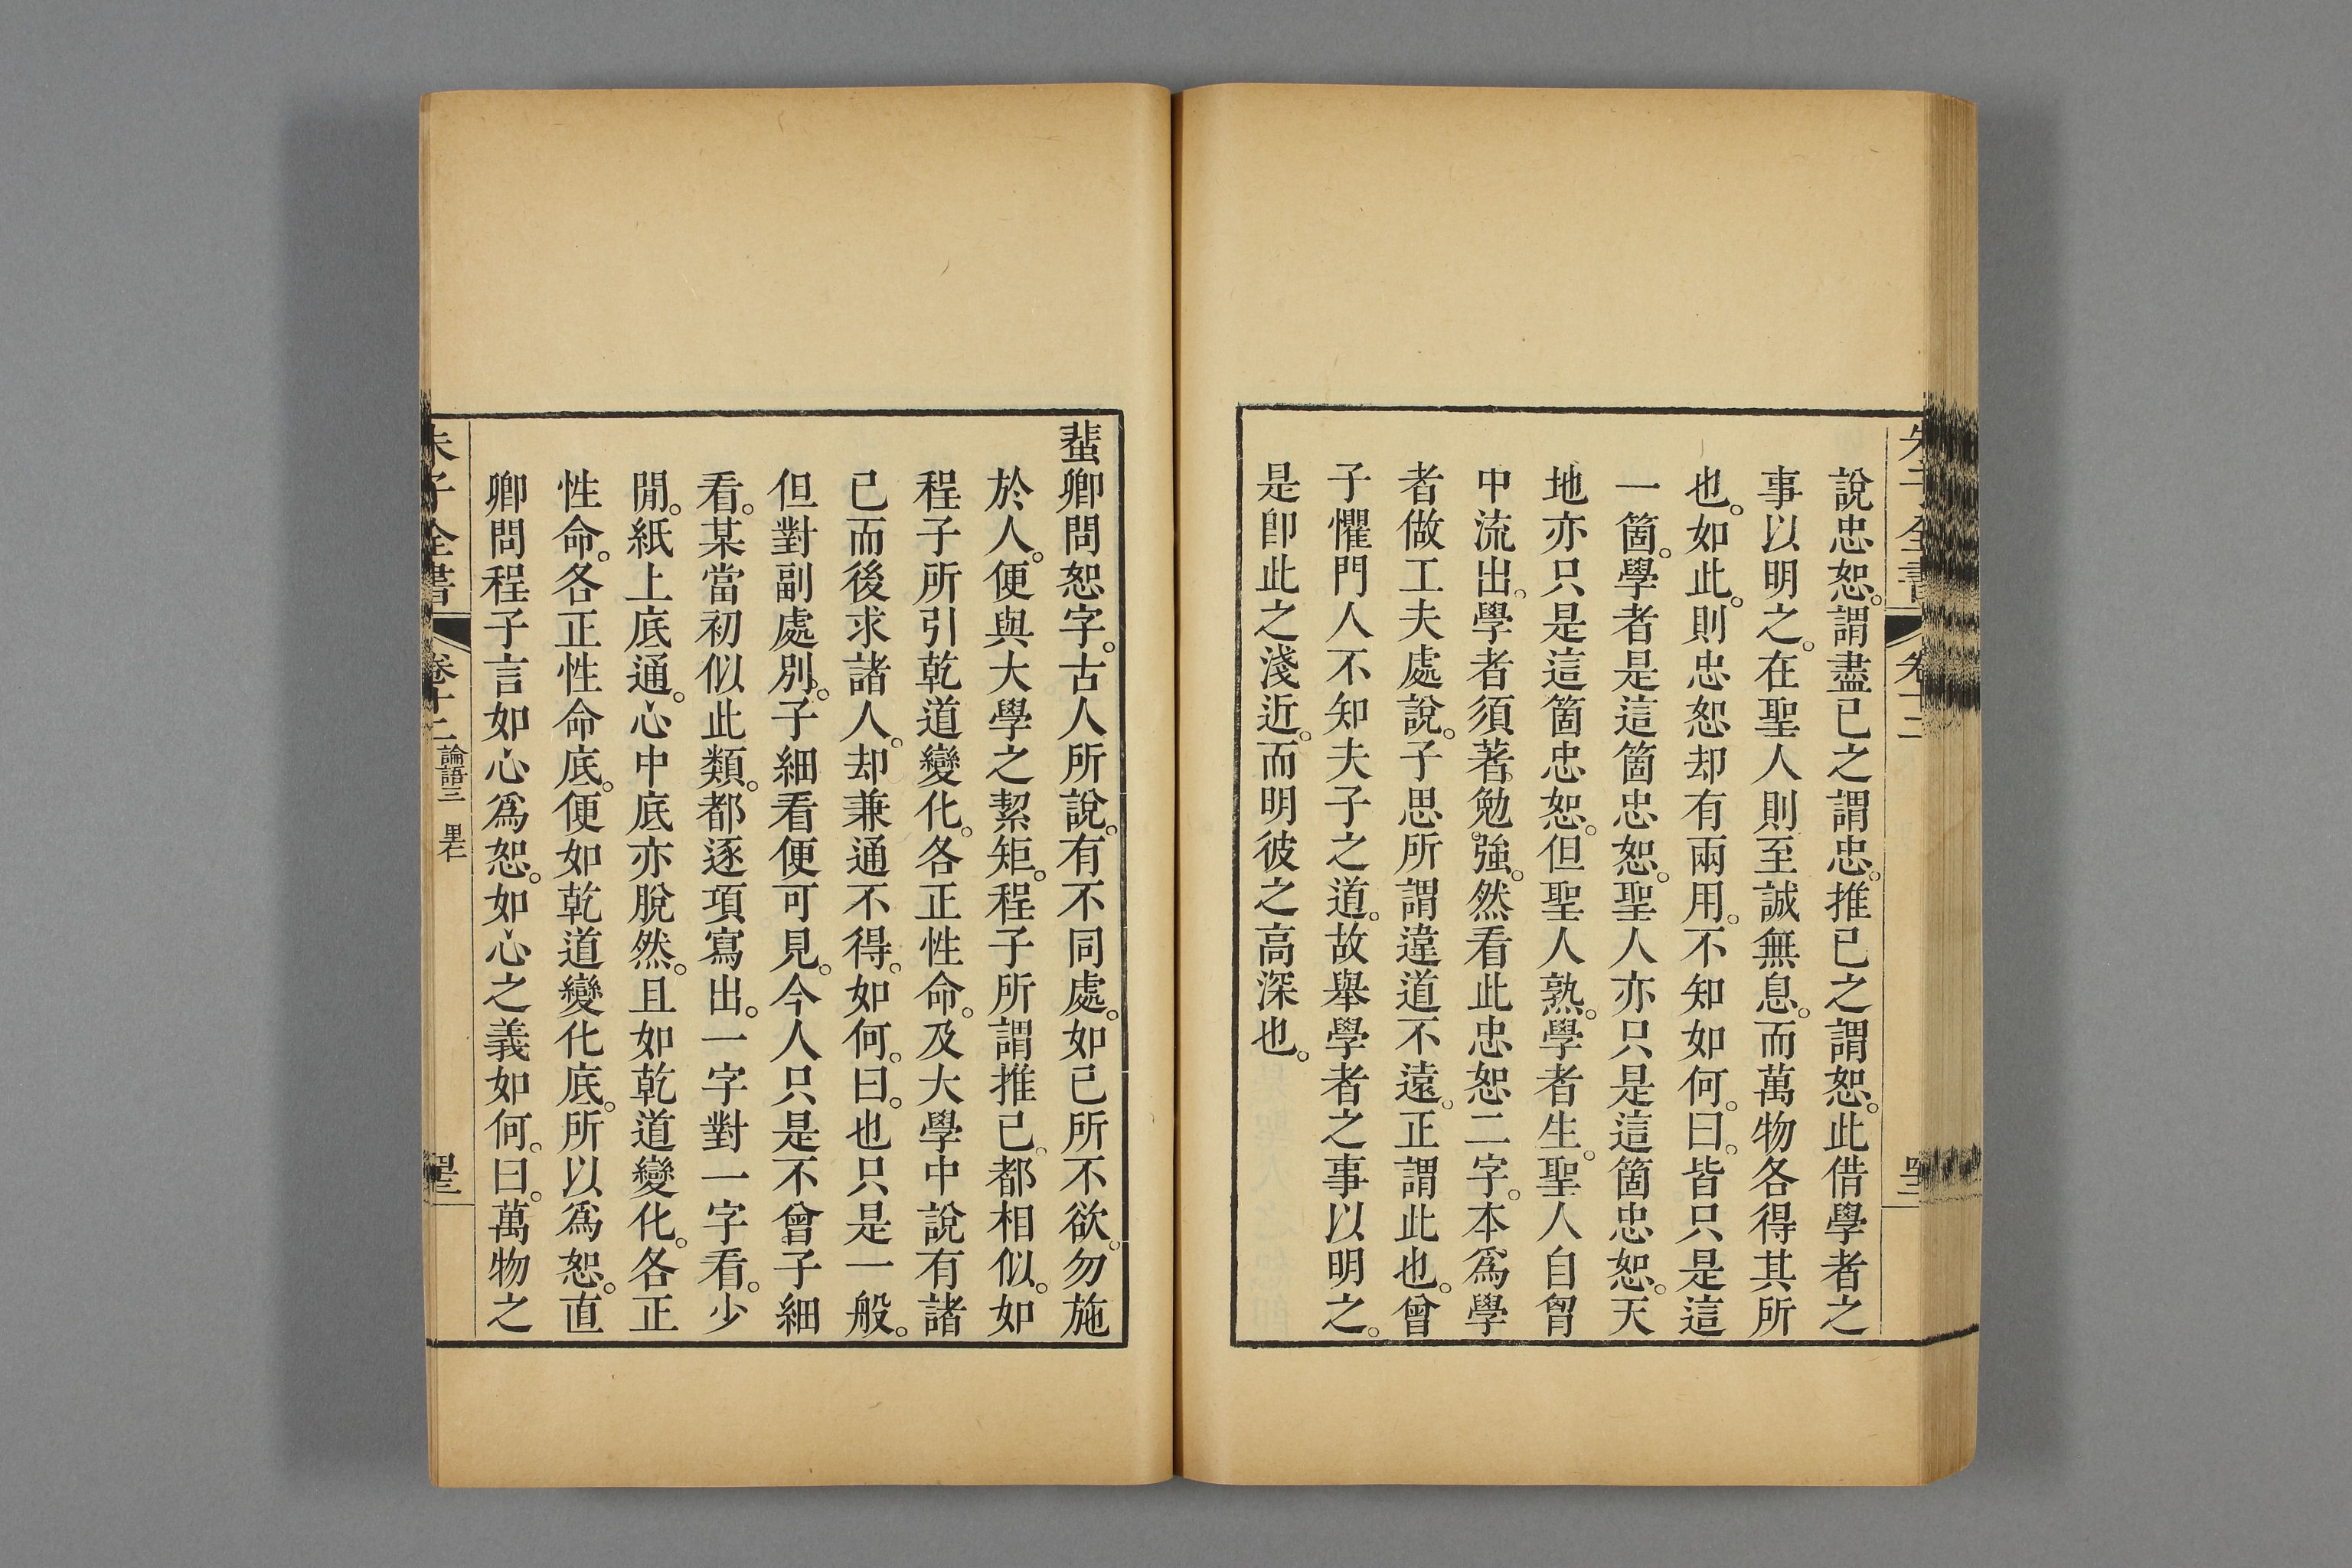 朱子全書 卷十二
說忠恕。謂盡己之謂忠。推己之謂恕。此借學者之
事以明之。在聖人則至誠無息。而萬物各得其所
也。如此。則忠恕却有兩用。不知如何。曰。皆只是這
一箇。學者是這箇忠恕。聖人亦只是這箇忠恕。天
地亦只是這箇忠恕。但聖人熟。學者生。聖人自胷
中流出。學者須著勉強。然看此忠恕二字。本爲學
者做工夫處說。子思所謂違道不遠。正謂此也。曾
子懼門人不知夫子之道。故舉學者之事以明之。
是卽此之淺近。而明彼之高深也。
蜚卿問恕字。古人所說。有不同處。如己所不欲。勿施
於人。便與大學之絜矩。程子所謂推己。都相似。如
程子所引乾道變化。各正性命。及大學中說有諸
己而後求諸人。却兼通不得。如何。曰。也只是一般。
但對副處別。子細看便可見。今人只是不曾子細
看。某當初似此類。都逐項寫出。一字對一字看。少
閒。紙上底通。心中底亦脫然。且如乾道變化。各正
性命。各正性命底。便如乾道變化底。所以爲恕。直
卿問程子言如心爲恕。如心之義如何。曰。萬物之
朱子全書 卷十二 論語三 里仁